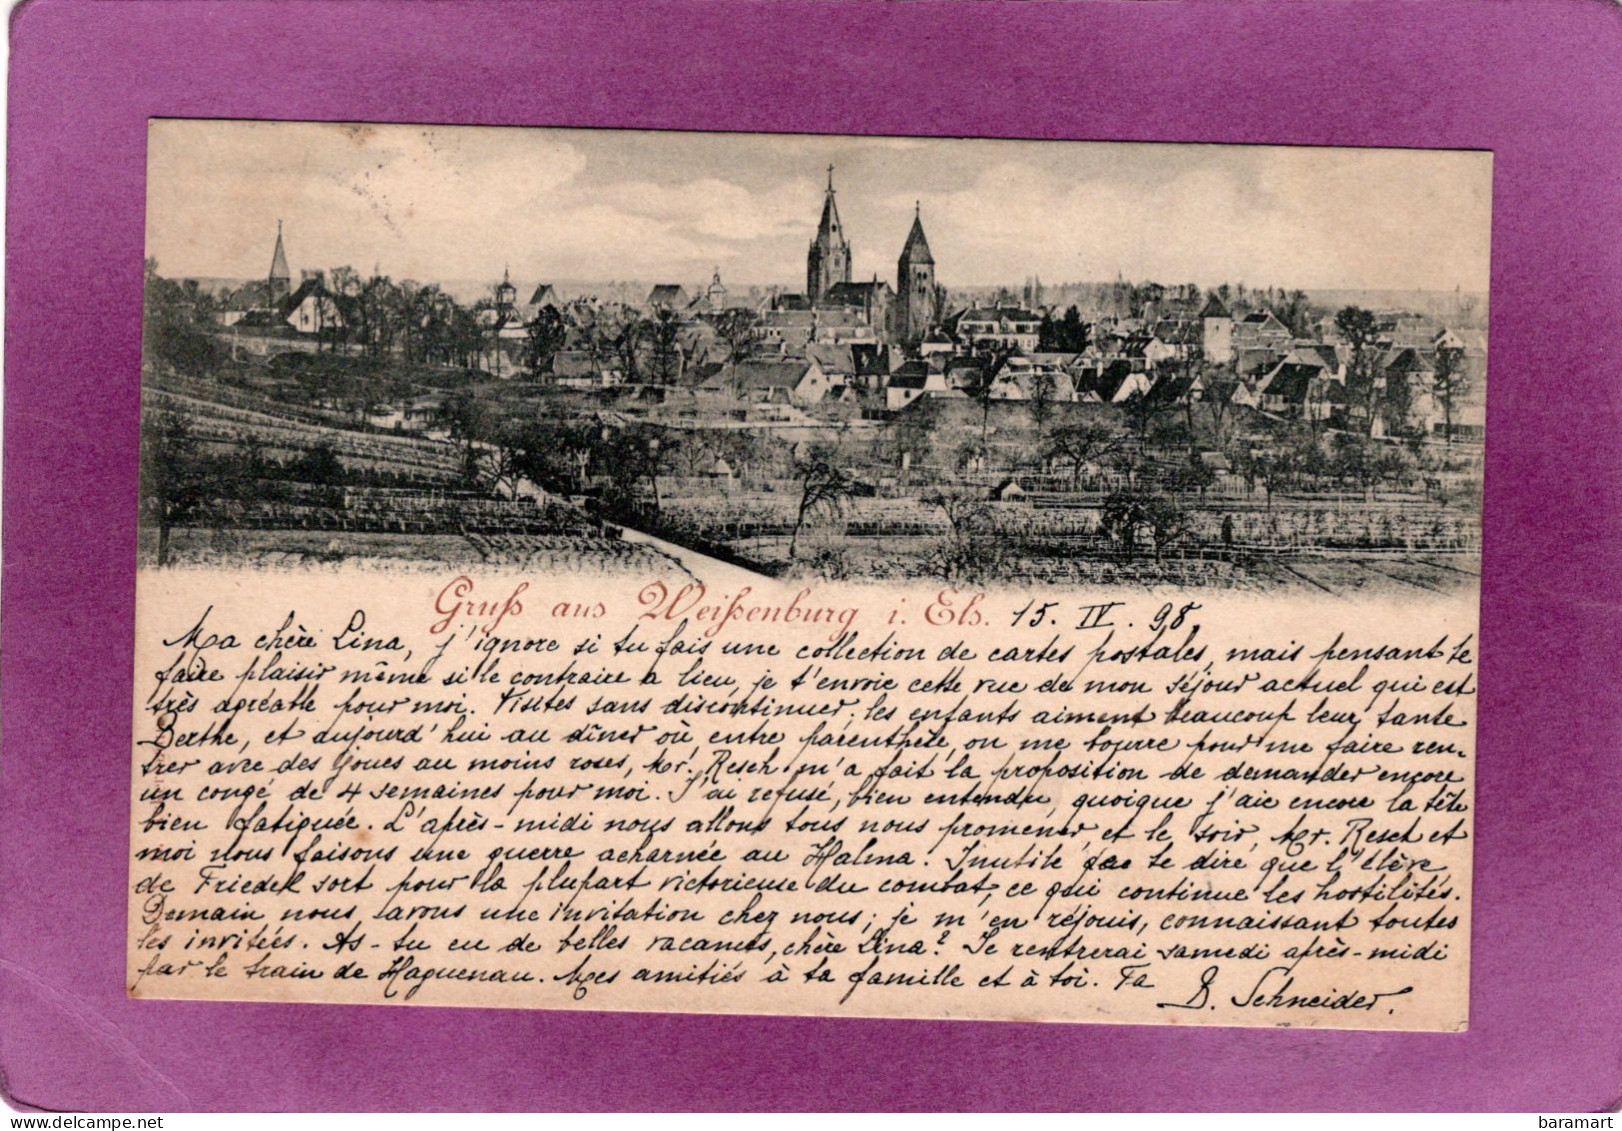 Gruß aus Weißenburg i. Els. 15. IV. 98.
Ma chère Lina, j'ignore si tu fais une collection de cartes postales, mais pensant te
faire plaisir même si le contraire a lieu, je t'envoie cette vue de mon séjour actuel qui est
très agréable pour moi. Visites sans discontinuer; les enfants aiment beaucoup leur tante
Berthe, et aujourd'hui au dîner où, entre parenthèse, on me bourre pour me faire ren-
trer avec des joues au moins roses, Mr. Resch m'a fait la proposition de demander encore
un congé de 4 semaines pour moi. J'ai refusé, bien entendu, quoique j'aie encore la tête
bien fatiguée. L'après-midi nous allons tous nous promener et le soir, Mr. Resch et
moi nous faisons une guerre acharnée au Halma. Inutile de te dire que l'élève
de Friedel sort pour la plupart victorieuse du combat, ce qui continue les hostilités.
Demain nous avons une invitation chez nous; je m'en réjouis, connaissant toutes
les invitées. As-tu eu de belles vacances, chère Lina? Je rentrerai samedi après-midi
par le train de Haguenau. Mes amitiés à ta famille et à toi. Ta
B. Schneider.
baramart